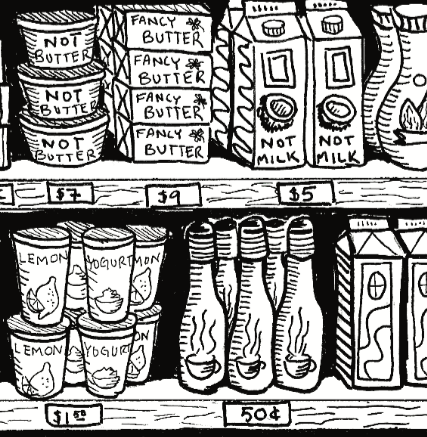 NOT
BUTTER
NOT
BUTTER
NOT
BUTTER
FANCY
BUTTER
FANCY
BUTTER
FANCY
BUTTER
FANCY
BUTTER
NOT
MILK
NOT
MILK
$7
$9
$5
LEMON
YOGURT
MON
LEMON
YOGURT
ON
$1.50
50¢